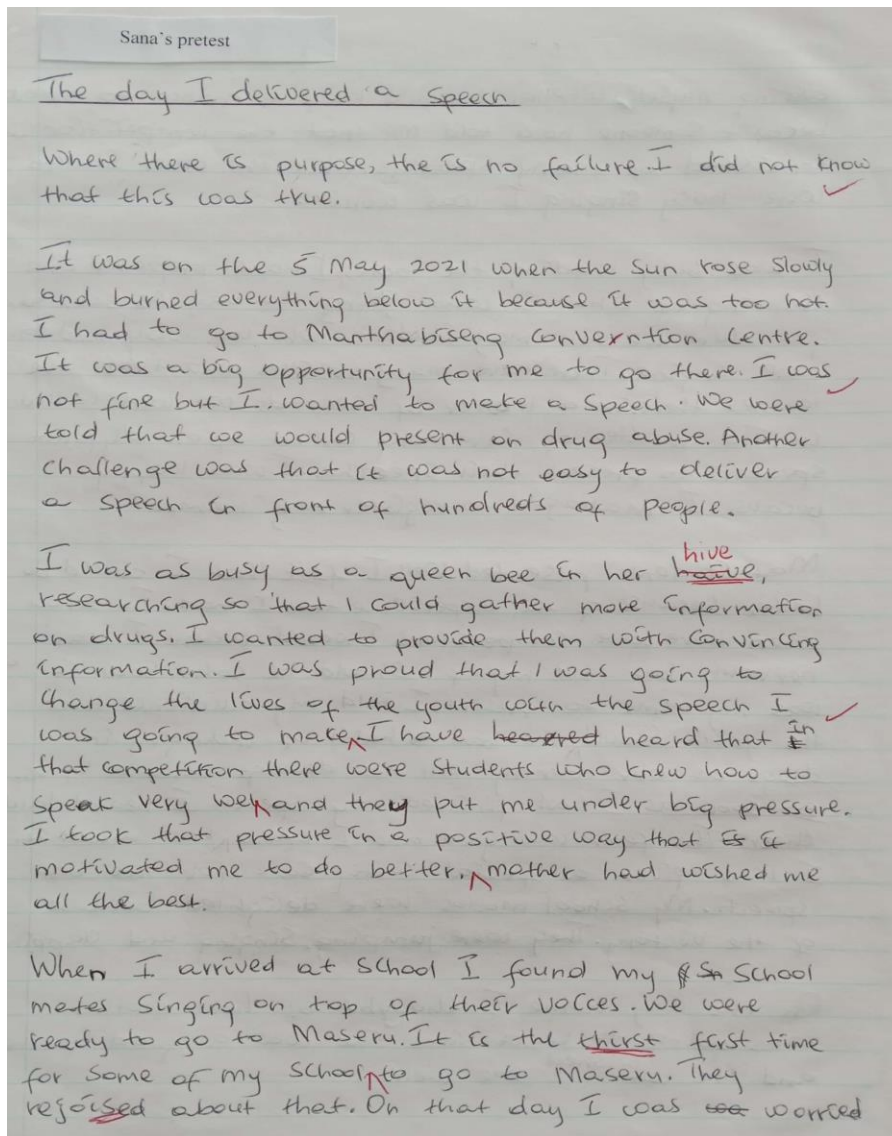 Sana`s pretest
The day I delivered a speech
Where there is purpose, the is no failure. I did not know
that this was true.
It was on the 5 May 2021 when the sun rose slowly
and burned everything below it because it was too hot.
I had to go to Manthabiseng Converntion Centre.
It was a big opportunity for me to go there. I was
not fine but I. wanted to make a speech. We were
told that we would present on drug abuse. Another
challenge was that it was not easy to deliver
a speech in front of hundreds of people.
hive
I was as busy as a queen bee in her haive,
researching so that I could gather more information
on drugs. I wanted to provide them with convincing
information. I was proud that I was going to
change the lives of the youth with the speech I
was going to make I have heared heard that in
that competition there were students who knew how to
speak very well and they put me under big pressure.
I took that pressure in a positive way that is it
motivated me to do better. mother had wished me
all the best.
When I arrived at school I found my school
mates singing on top of their voices. We were
ready to go to Maseru. It is the thirst first time
for some of my school to go to Maseru. They
rejoised about that. On that day I was worried